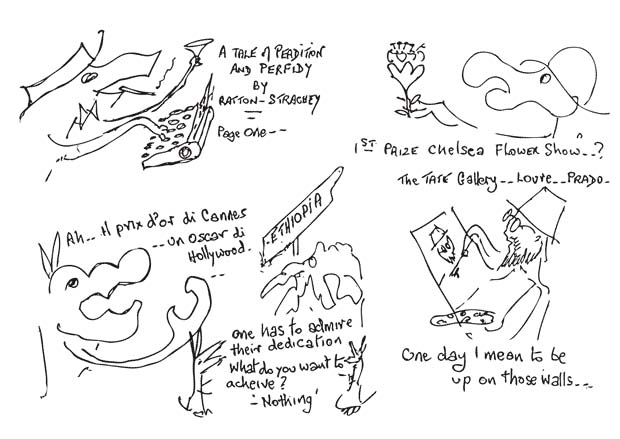 A TALE of PERDITION
AND PERFIDY
BY
RATTON-STRACHEY
Page One---
1ST PRIZE Chelsea Flower Show..?
The TATE Gallery.. Louvre.. PRADO.
Ah... Il prix d'or di Cannes
-- un oscar di
Hollywood.
ETHIOPIA
one has to admire
their dedication
What do you want to
acheive?
- 'Nothing'
One day I mean to be
up on those walls...